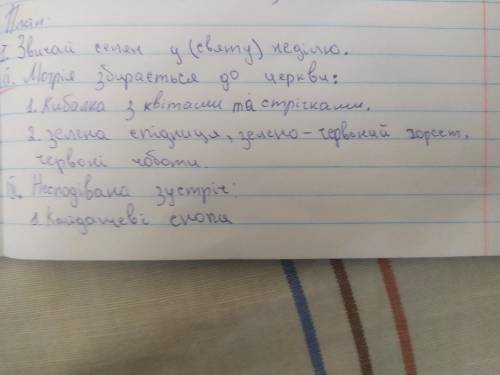 План:
I. Звичай селян у (святу) неділю.
II. Мотрія збирається до церкви:
1. Кибалка з квітами та стрічками.
2. зелена спідниця, зелено-червоний горсет,
червоні чоботи.
III. Несподівана зустріч:
1. Кайдашеві снопи